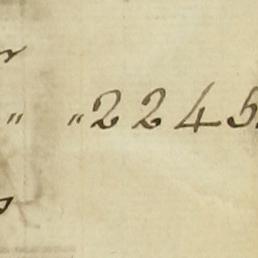 " " 2245